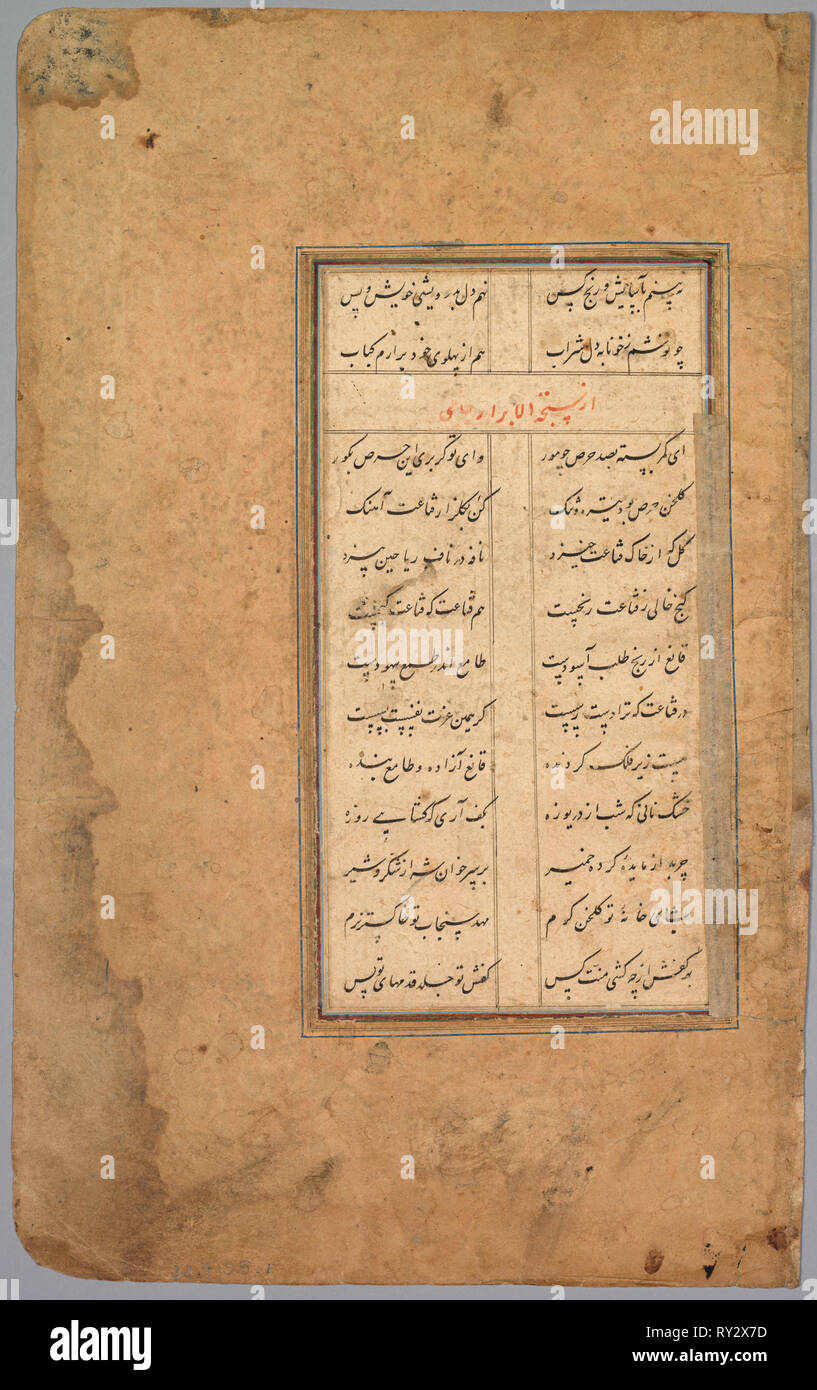 نهم دل بدرویشی خویش و بس
چو نوشم ز خونابه دل شراب هم از پهلوی خود برارم کباب
از سبحة الابرار جامی
ای کمر بسته بصد حرص چو مور وای تو گر بری این حرص بگور
گلخن حرص بود تیره و تنگ کن بگلزار قناعت آهنگ
گل که از خاک قناعت خیزد نافه در ناف ریاحین بیزد
گنج خالی ز قناعت رنجیست هم قناعت که قناعت گنجیست
قانع از رنج طلب آسودست طامع اندر طمع بیهودست
در قناعت که ترا دست رسست گر همین عزت نفسیست بسست
نیست زیر فلک گردنده قانع آزاده و طامع بنده
خشک نانی که شب از دریوزه بکف آری که گشایی روزه
چربه از مایده کرده خمیر بر سر خوان شه از شکر و شیر
خانه تو گلخن گرم مهد سنجاب تو خاکستر نرم
بد کفش از چه کشی منت کس کفش تو جلد قدمهای تو بس
alamy
alamy
alamy
a
a
11.98.1
alamy
Image ID: RY2X7D
www.alamy.com